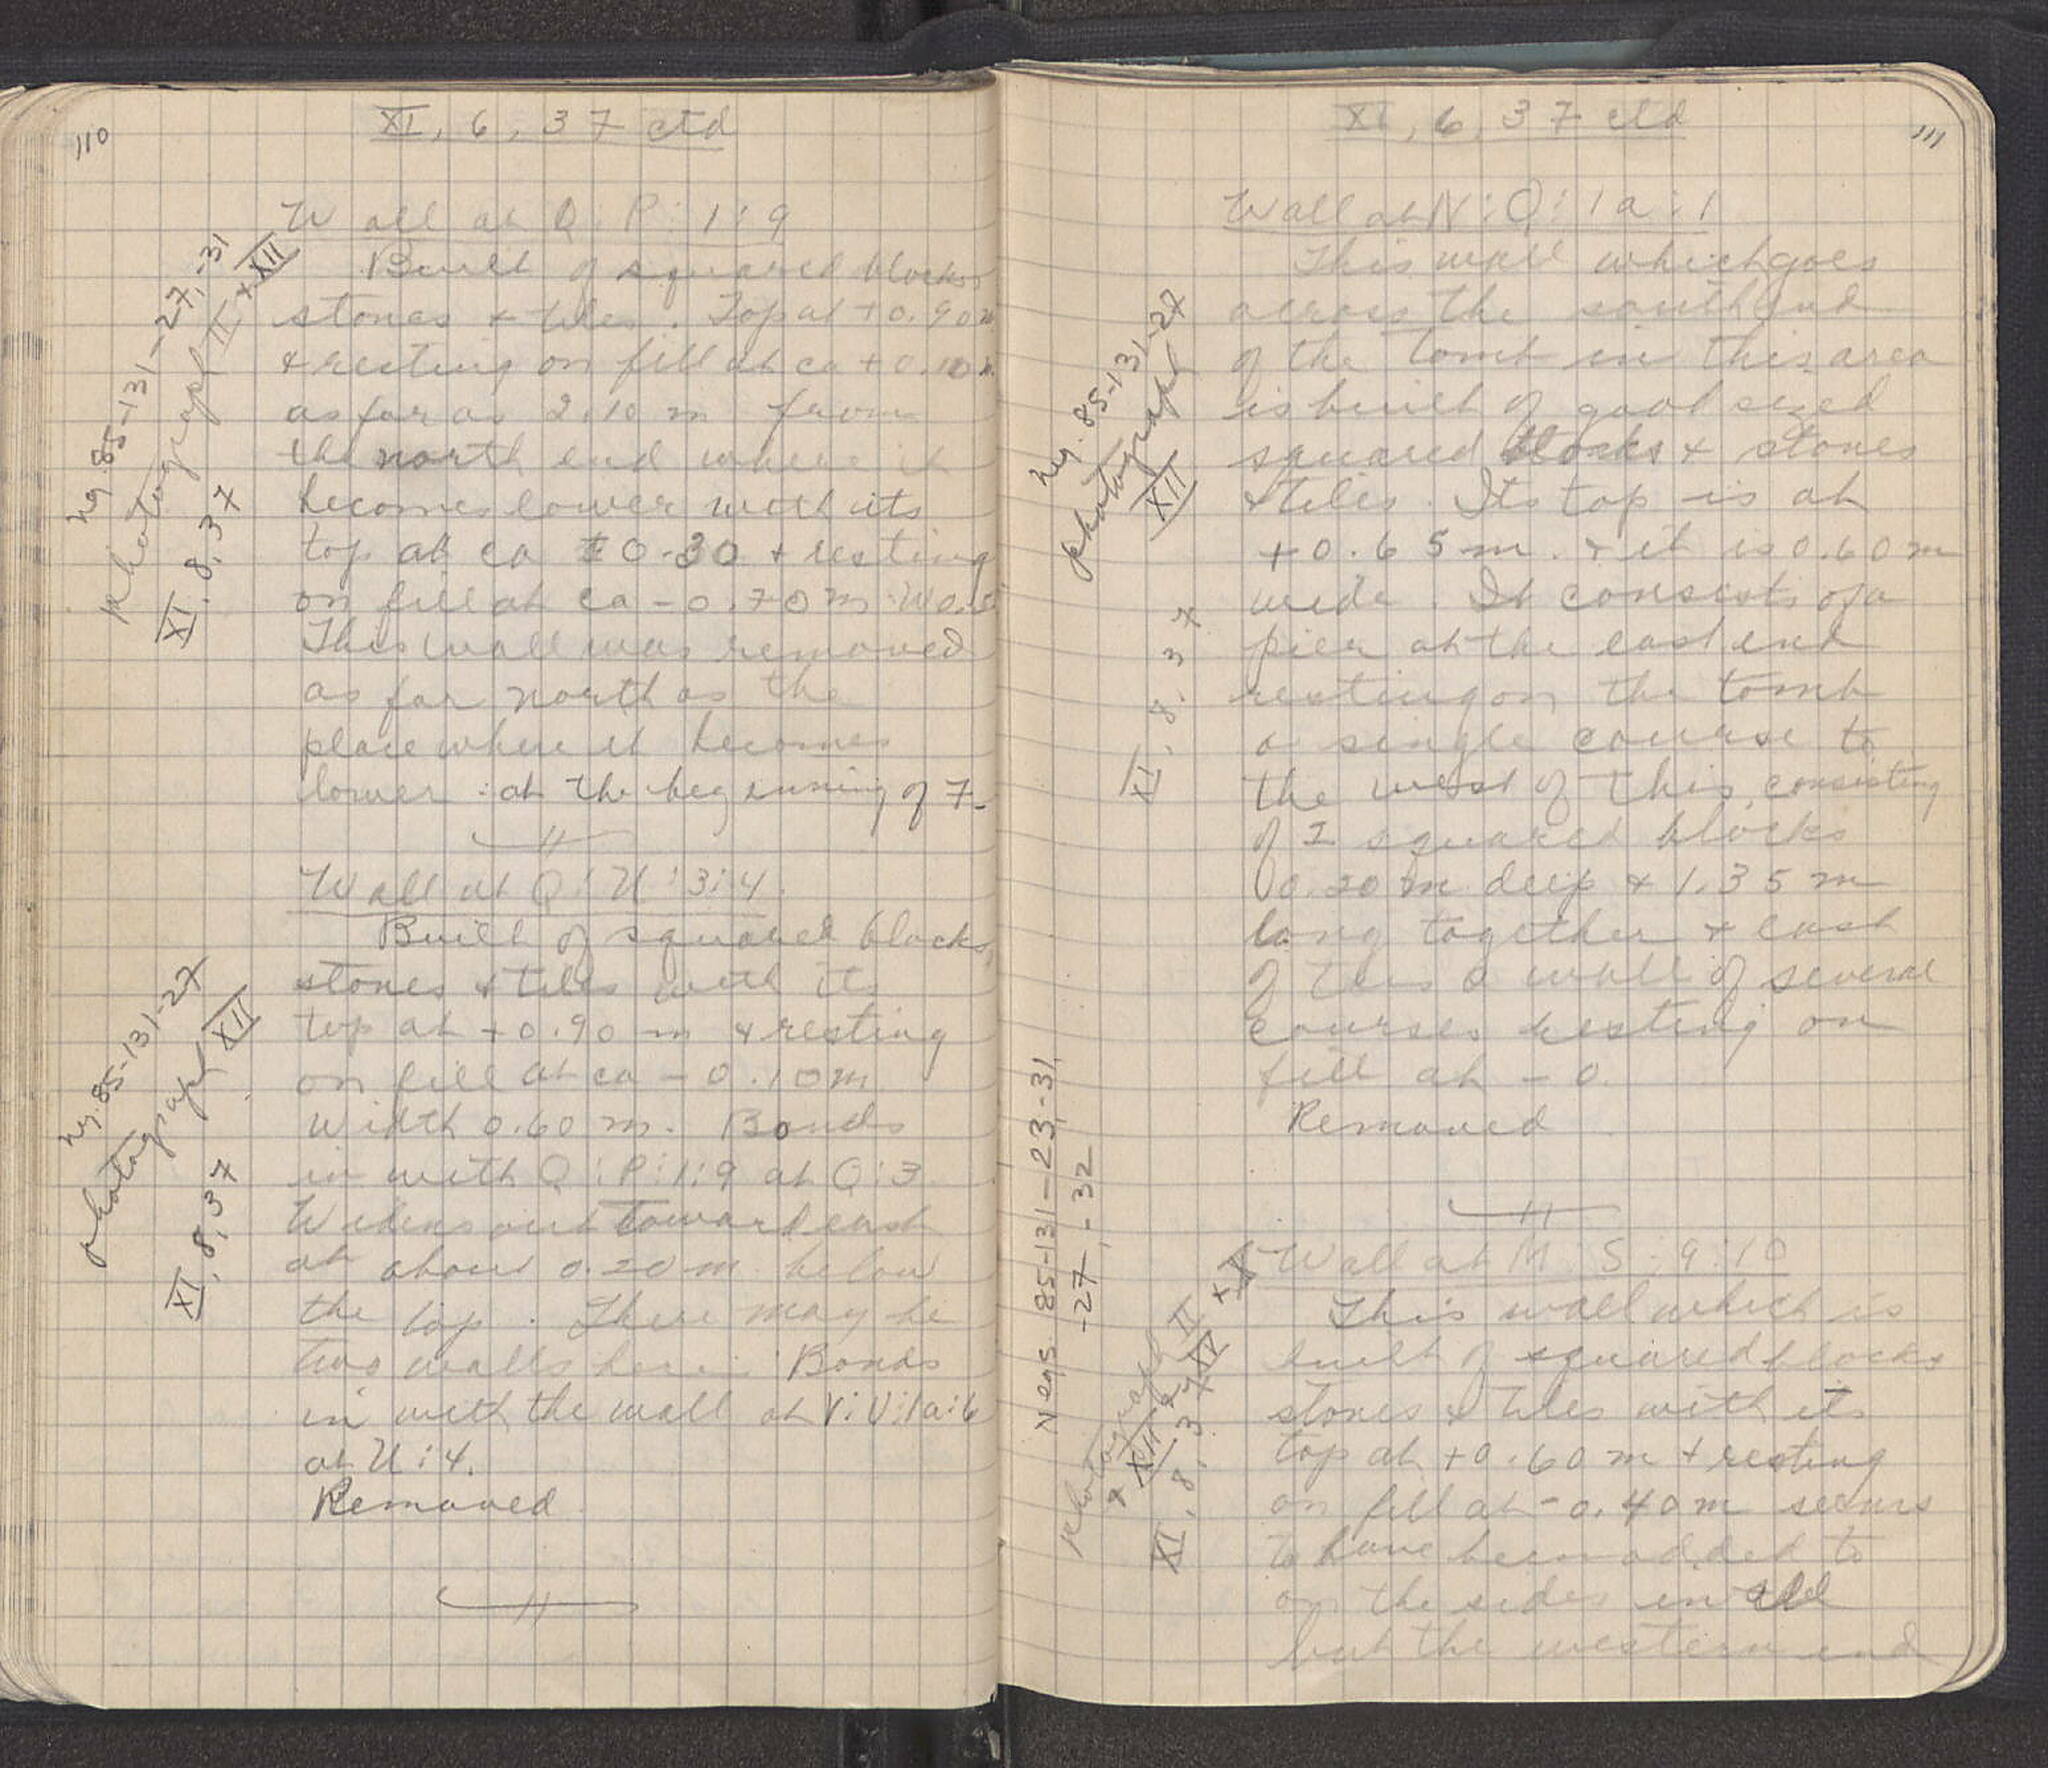 110
XI, 6, 37 ctd
Wall at Q : P : 1 : 9
Built of squared blocks
stones + tiles. Top at +0.90 m
+ resting on fill at ca +0.10 m
as far as 2.10 m from
the north end where it
becomes lower with its
top at ca ±0.30 + resting
on fill at ca -0.70 m.
This wall was removed
as far north as the
place where it becomes
lower : at the beginning of 7.
neg. 85-131-27, -31
Photograph II + XII
XI, 8, 37
Wall at Q : U : 3 : 4.
Built of squared blocks,
stones + tiles with its
top at +0.90 m + resting
on fill at ca -0.10 m
Width 0.60 m. Bonds
in with Q : P : 1 : 9 at Q : 3
Widens out toward east
at about 0.20 m below
the top. There may be
two walls here. Bonds
in with the wall at V : U : 1a : 6
at U : 4.
Removed
neg. 85-131-27
Photograph XII
XI, 8, 37
111
XI, 6, 37 ctd
Wall at N : Q : 1a : 1
This wall which goes
across the south end
of the tomb in this area
is built of good sized
squared blocks + stones
+ tiles. Its top is at
+0.65 m. + it is 0.60 m
wide. It consists of a
pier at the east end
resting on the tomb
a single course to
the west of this, consisting
of 2 squared blocks
0.20 m deep + 1.35 m
long together + east
of this a wall of several
courses resting on
fill at -0.
Removed
neg. 85-131-27
Photograph XII
XI, 8, 37
Wall at M : S : 9 : 10
This wall which is
built of squared blocks
stones + tiles with its
top at +0.60 m + resting
on fill at -0.40 m seems
to have been added to
on the sides in all
but the western end
Negs. 85-131-23, -31,
-27, -32
Photograph II + X
+ XII + XV
XI, 8, 37